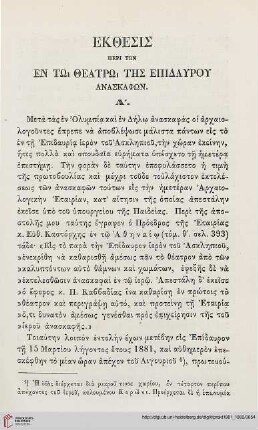 ΕΚΘΕΣΙΣ
ΠΕΡΙ ΤΩΝ
ΕΝ ΤΩι ΘΕΑΤΡΩι ΤΗΣ ΕΠΙΔΑΥΡΟΥ
ΑΝΑΣΚΑΦΩΝ.
Α'.
Μετὰ τὰς ἐν Ὀλυμπίᾳ καὶ ἐν Δήλῳ ἀνασκαφὰς οἱ ἀρχαιο-
λογοῦντες ἔπρεπε νὰ ἀποβλέψωσι μάλιστα πάντων εἰς τὸ
ἐν τῇ Ἐπιδαυρίᾳ ἱερὸν τοῦ Ἀσκληπιοῦ, τὴν χώραν ἐκείνην,
ἥτις πολλὰ καὶ σπουδαῖα εὑρήματα ὑπέσχετο τῇ ἡμετέρᾳ
ἐπιστήμῃ. Τὴν φορὰν δὲ ταύτην ἐπεφυλάσσετο ἡ τιμὴ
τῆς πρωτοβουλίας καὶ μέχρι τοῦδε τοὐλάχιστον ἐκτελέ-
σεως τῶν ἀνασκαφῶν τούτων εἰς τὴν ἡμετέραν Ἀρχαιο-
λογικὴν Ἑταιρίαν, κατ' αἴτησιν τῆς ὁποίας ἀπεστάλην
ἐκεῖσε ὑπὸ τοῦ ὑπουργείου τῆς Παιδείας. Περὶ τῆς ἀπο-
στολῆς μου ταύτης ἔγραψεν ὁ Πρόεδρος τῆς Ἑταιρίας
κ. Εὐθ. Καστόρχης ἐν τῷ Ἀθηναίῳ (τόμ. θ'. σελ. 393)
τάδε· «Εἰς τὸ παρὰ τὴν Ἐπίδαυρον ἱερὸν τοῦ Ἀσκληπιοῦ,
ἐνεκρίθη νὰ καθαρισθῇ ἀμέσως πᾶν τὸ θέατρον ἀπὸ τῶν
καλυπτόντων αὐτὸ θάμνων καὶ χωμάτων, ἐφεξῆς δὲ νὰ
ἐκτελεσθῶσιν ἀνασκαφαὶ ἐν τῷ ἱερῷ. Ἀπεστάλη δ' ἐκεῖσε
ὁ ἔφορος κ. Π. Καββαδίας ἵνα καθαρίσῃ ἐν πρώτοις τὸ
θέατρον καὶ περιγράψῃ αὐτό, καὶ προτείνῃ τῇ Ἑταιρίᾳ
ὅ,τι δυνατὸν ἀμέσως γενέσθαι πρὸς ἐπιχείρησιν τῆς τοῦ
ἱεροῦ ἀνασκαφῆς.»
Τοιαύτην λοιπὸν ἐντολὴν ἔχων μετέβην εἰς Ἐπίδαυρον
τῇ 15 Μαρτίου λήγοντος ἔτους 1881, καὶ αὐθημερὸν ἐπε-
σκέφθην τὸ μίαν ὥραν ἀπέχον τοῦ Λιγουριοῦ ¹), πρωτευού-